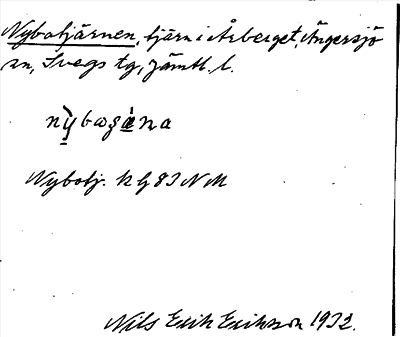 Nybotjärnen, tjärn i Årberget, Ängersjö
sn, Svegs tg, Jämtl. l.
Nybotj. K G 83 N M
Nils Erik Eriksson 1932.